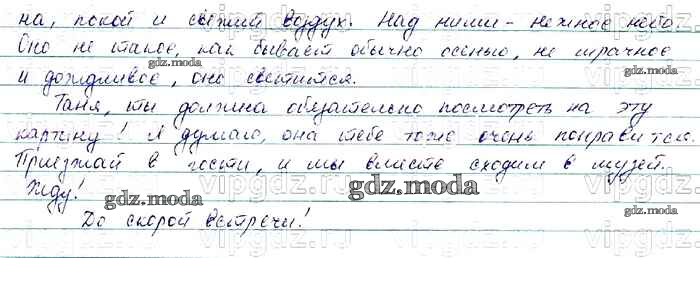 на, покой и свежий воздух. Над ними - нежное небо.
Оно не такое, как бывает обычно осенью, не мрачное
и дождливое, оно светится.
Таня, ты должна обязательно посмотреть на эту
картину! Я думаю, она тебе тоже очень понравится.
Приезжай в гости, и мы вместе сходим в музей.
Жду!
До скорой встречи!
gdz.moda
gdz.moda
gdz.moda
gdz.moda
gdz.moda
gdz.moda
vipgdz.ru
vipgdz.ru
vipgdz.ru